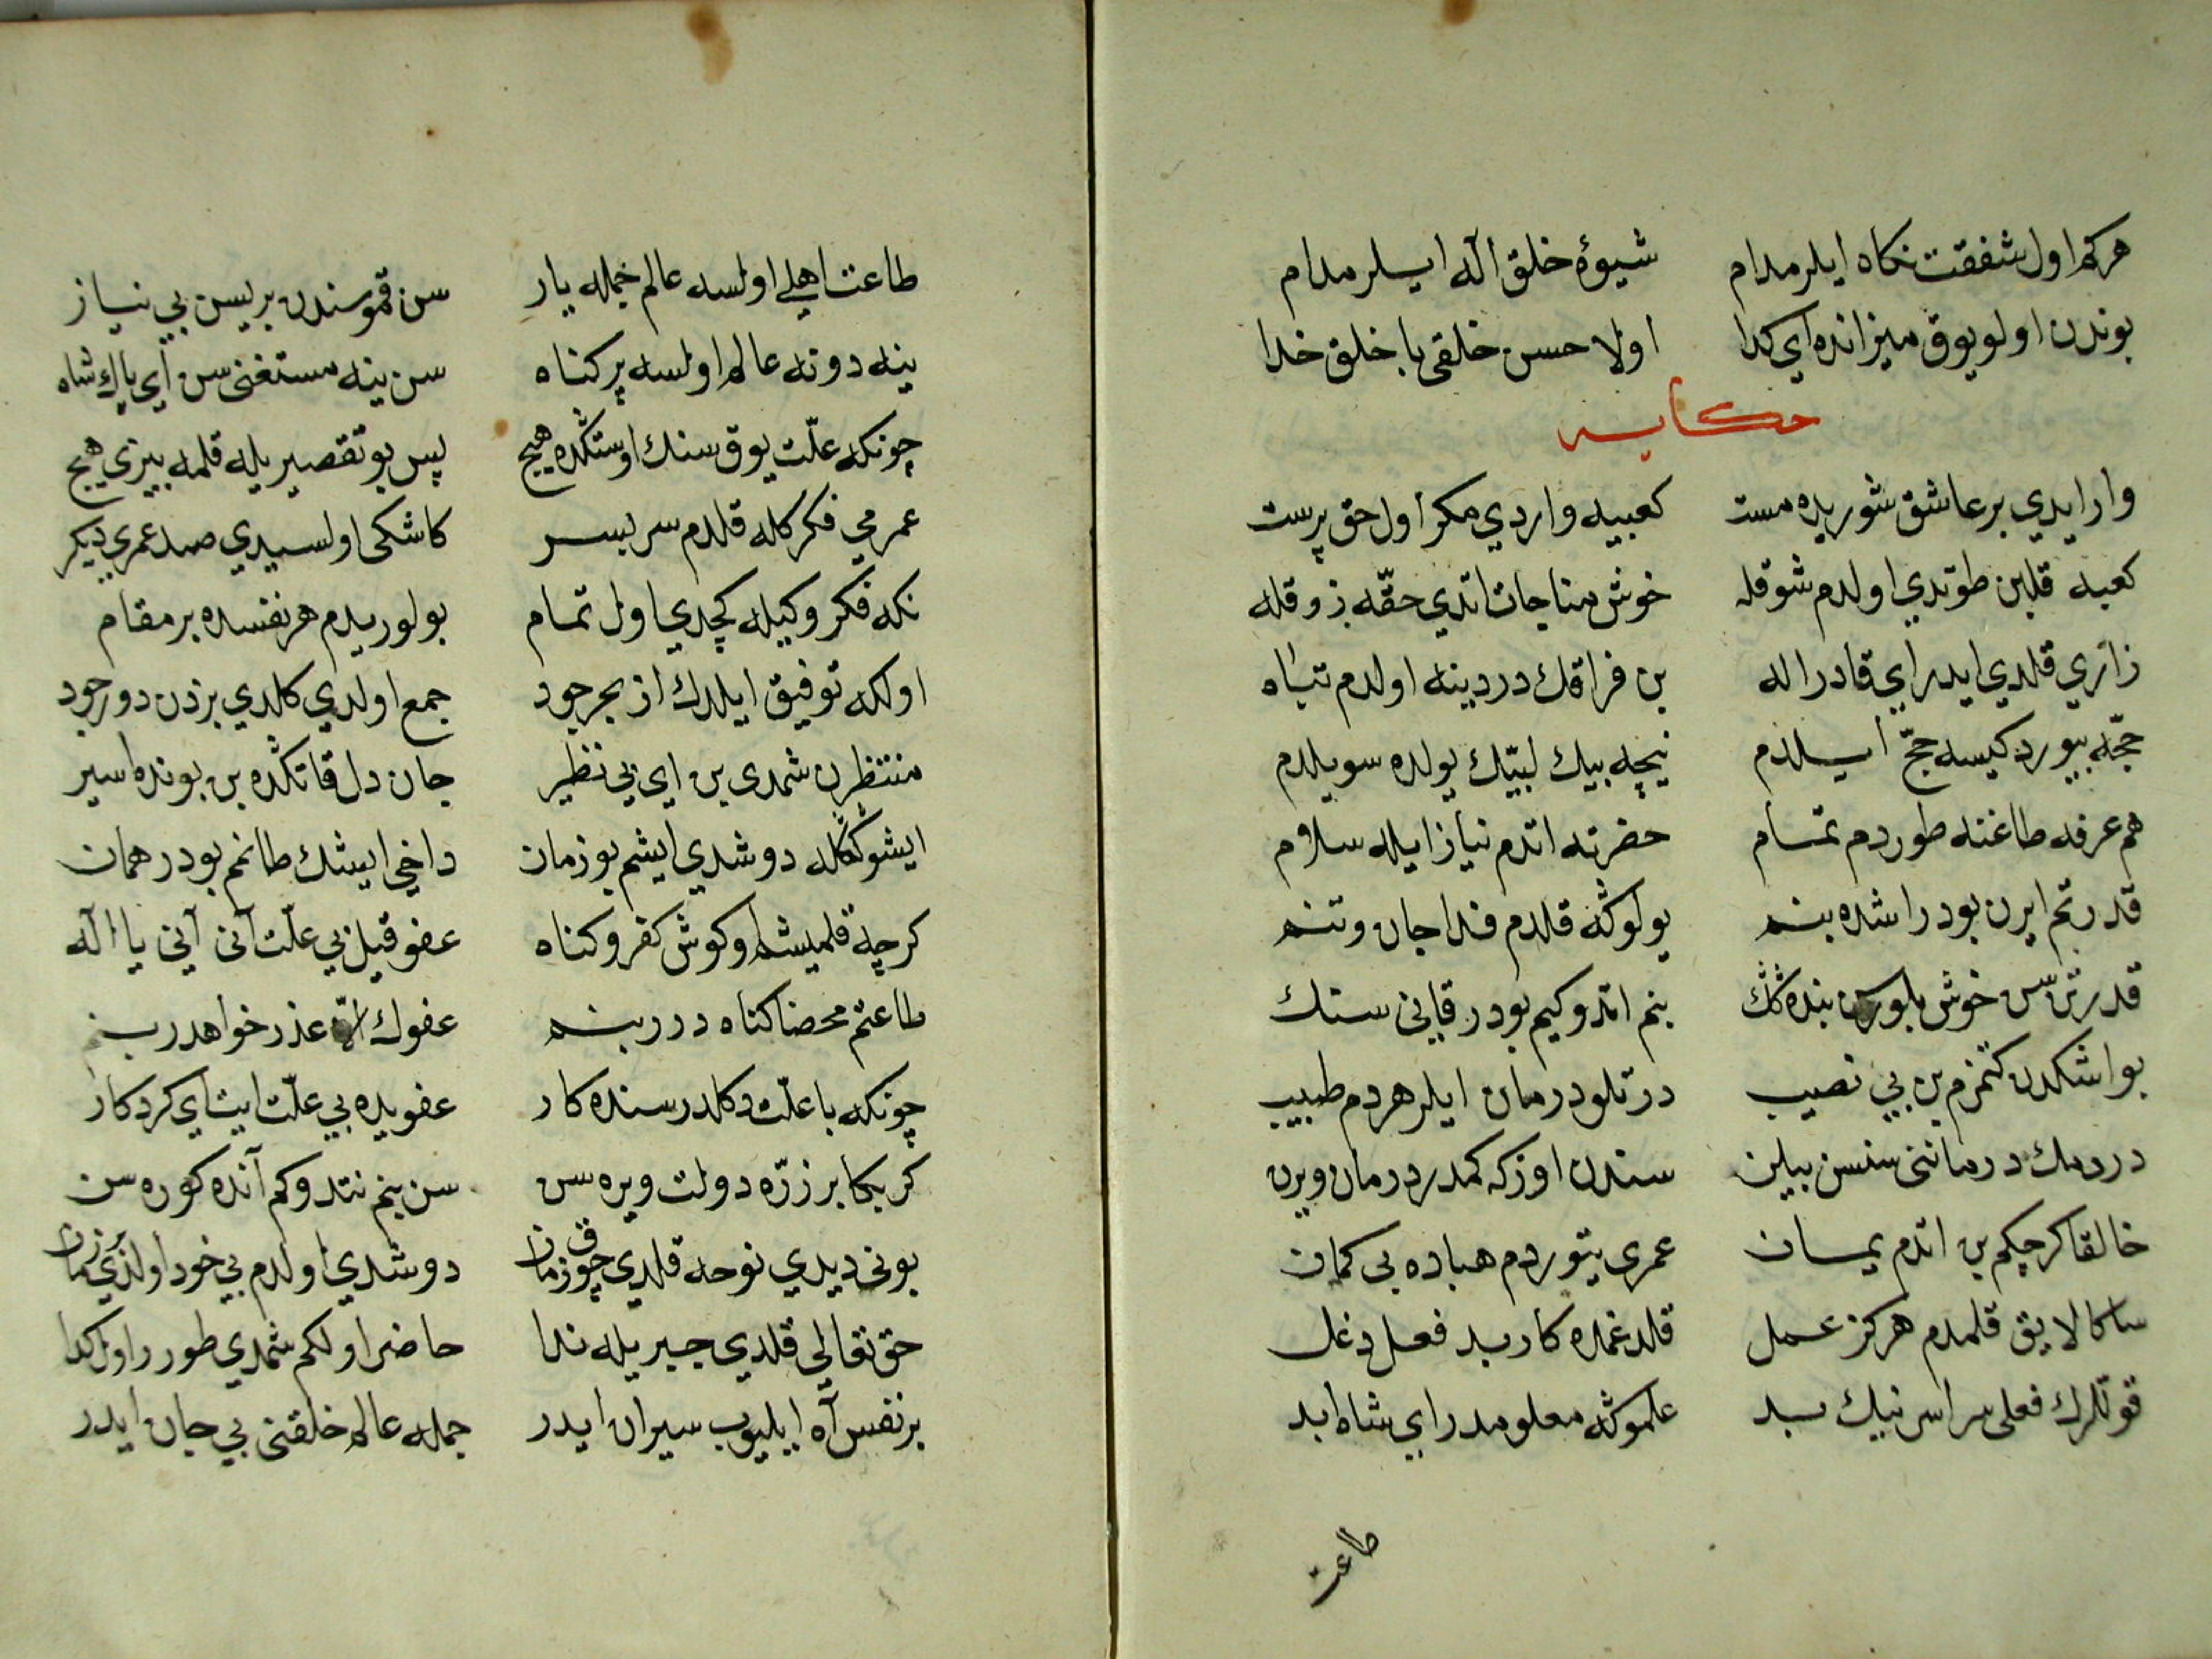 هركم اول شفقت نكاه ايلر مدام شيوهٔ خلق اله ايسلر مدام
بوندن اولو يوق ميزانده اي كدا اولا حسن خلقى با خلق خدا
حكايه
وارايدي بر عاشق شوريده مست كعبيه واردي مكر اول حق پرست
كعبه قلبن طوتدي اولدم شوقله خوش مناجات اتدي حقّه ذوقله
زاري قلدي ايدر اي قادر اله بن فراقك دردينه اولدم تباه
حجّه بيوردكيسه حجّ ايلدم نيچه بيك لبيّك يولده سويلدم
هم عرفه طاغنه طوردم تمام حضرته اتدم نياز ايله سلام
قدرتم ايرن بودر اشده بنم يولوكه قلدم فدا جان و تنم
خوش بلورسن بنده كك بنم اتدوكيم بودر قانى سنك
بو اشكدن كتمزم بن بي نصيب درتلو درمان ايلر هر دم طبيب
دردمك درماننى سنسن بيلن سندن اوزكه كمدر درمان ويرن
خالقا كرچكم بن اتدم يمان عمرى يتوردم هباده بى كمان
سكا لايق قلمدم هركز عمل قلدغمده كار بد فعل دغل
قوللرك فعلى سراسر نيك بد علموكه معلومدر اي شاه ابد
طاعت
طاعت اهلي اولسه عالم جمله يار سن قموسندن بريسن بي نياز
ينه دونه عالم اولسه پر كناه سن ينه مستغنى سن اي پاك شاه
چونكه علّت يوق سنك اوستكده هيچ پس بو تقصيريله قلمه بيزي هيچ
عمرمي فكركله قلدم سر بسر كاشكى اولسيدي صد عمري ديكر
نكه فكروكيله كچدي اول تمام بولوريدم هر نفسده بر مقام
اولكه توفيق ايلدك از بحر جود جمع اولدي كلدي بزدن دور جود
منتظرن شمدى بن اي بي نظير جان دل قاتكده بن بونده اسير
ايشوككله دوشدي ايشم بو زمان داخي ايشك طانم بودر همان
كرچه قلمشم اوكوش كفر و كناه عفو قيل بي علّت آنى آني يا اله
طاعتم محضا كناه در در بنم عفوك عذر خواهدر بنم
چونكه با علّت دكلدر سنده كار عفويده بي علّت ايت اي كردكار
كر بكا بر ذرّه دولت ويره سن سن بنم نتدوكم آنده كوره سن
بونى ديدي نوحه قلدي چوق زمان دوشدي اولدم بي خود اولدي زمان
حق تعالى قلدي جبريله ندا حاضر اولكم شمدي طورر اول كدا
بر نفس آه ايليوب سيران ايدر جمله عالم خلقنى بي جان ايدر